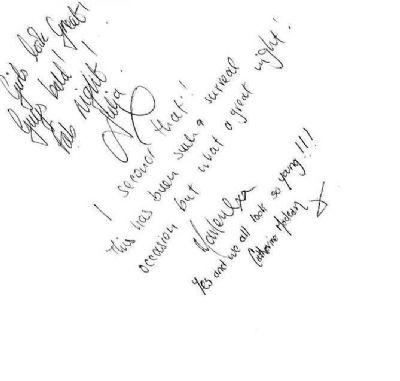 Girls look Great!
Guys bald!!
Fab night
I second that!!
This has been such a surreal
occasion but what a great night!
Yes and we all look so young!!!
Catherine
X